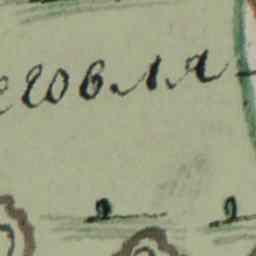 еговля